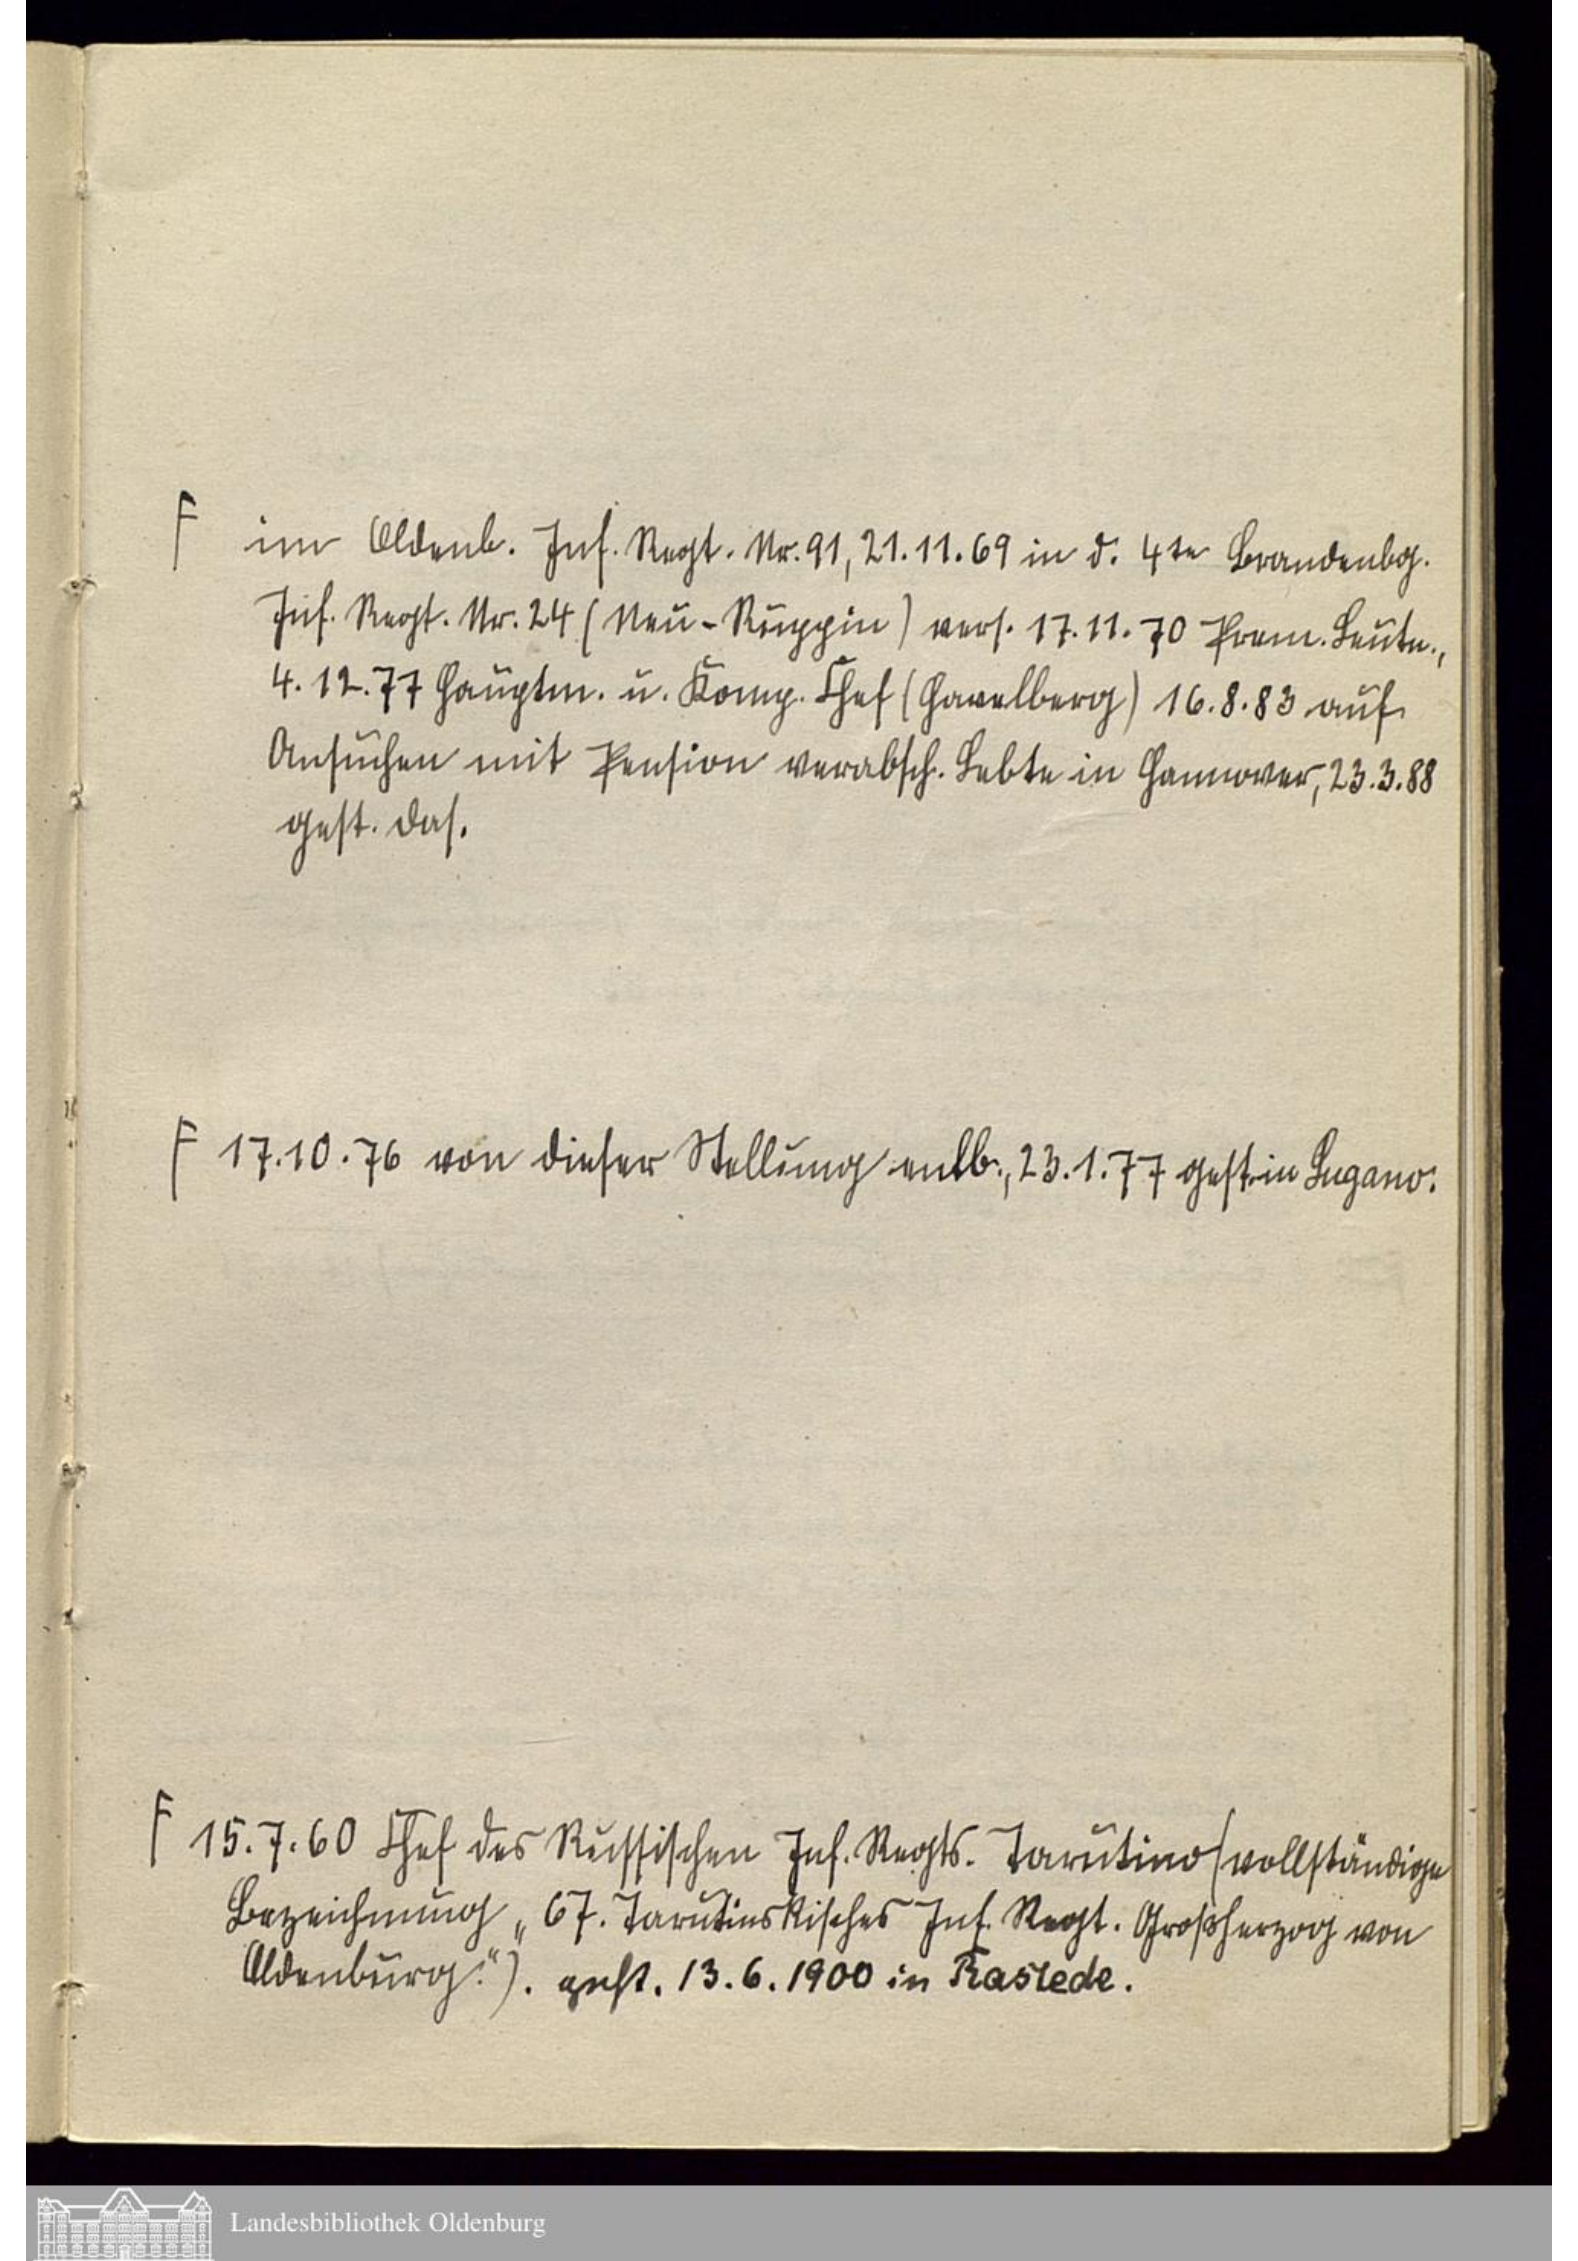 F im Oldenb. Inf. Regt. Nr. 91, 21.11.69 in d. 4te Brandenbg.
Inf. Regt. Nr. 24 (Neu-Ruppin) vers. 17.11.70 Prem. Leutn.,
4.12.77 Hauptm. u. Komp. Chef (Havelberg) 16.8.83 auf
Ansuchen mit Pension verabsch. Lebte in Hannover, 23.3.88
gest. das.
F 17.10.76 von dieser Stellung entb., 23.1.77 gest. in Lugano.
F 15.7.60 Chef des Russischen Inf. Regts. Tarutino (vollständige
Bezeichnung „67. Tarutinskisches Inf. Regt. Großherzog von
Oldenburg."). gest. 13.6.1900 in Rastede.
Landesbibliothek Oldenburg